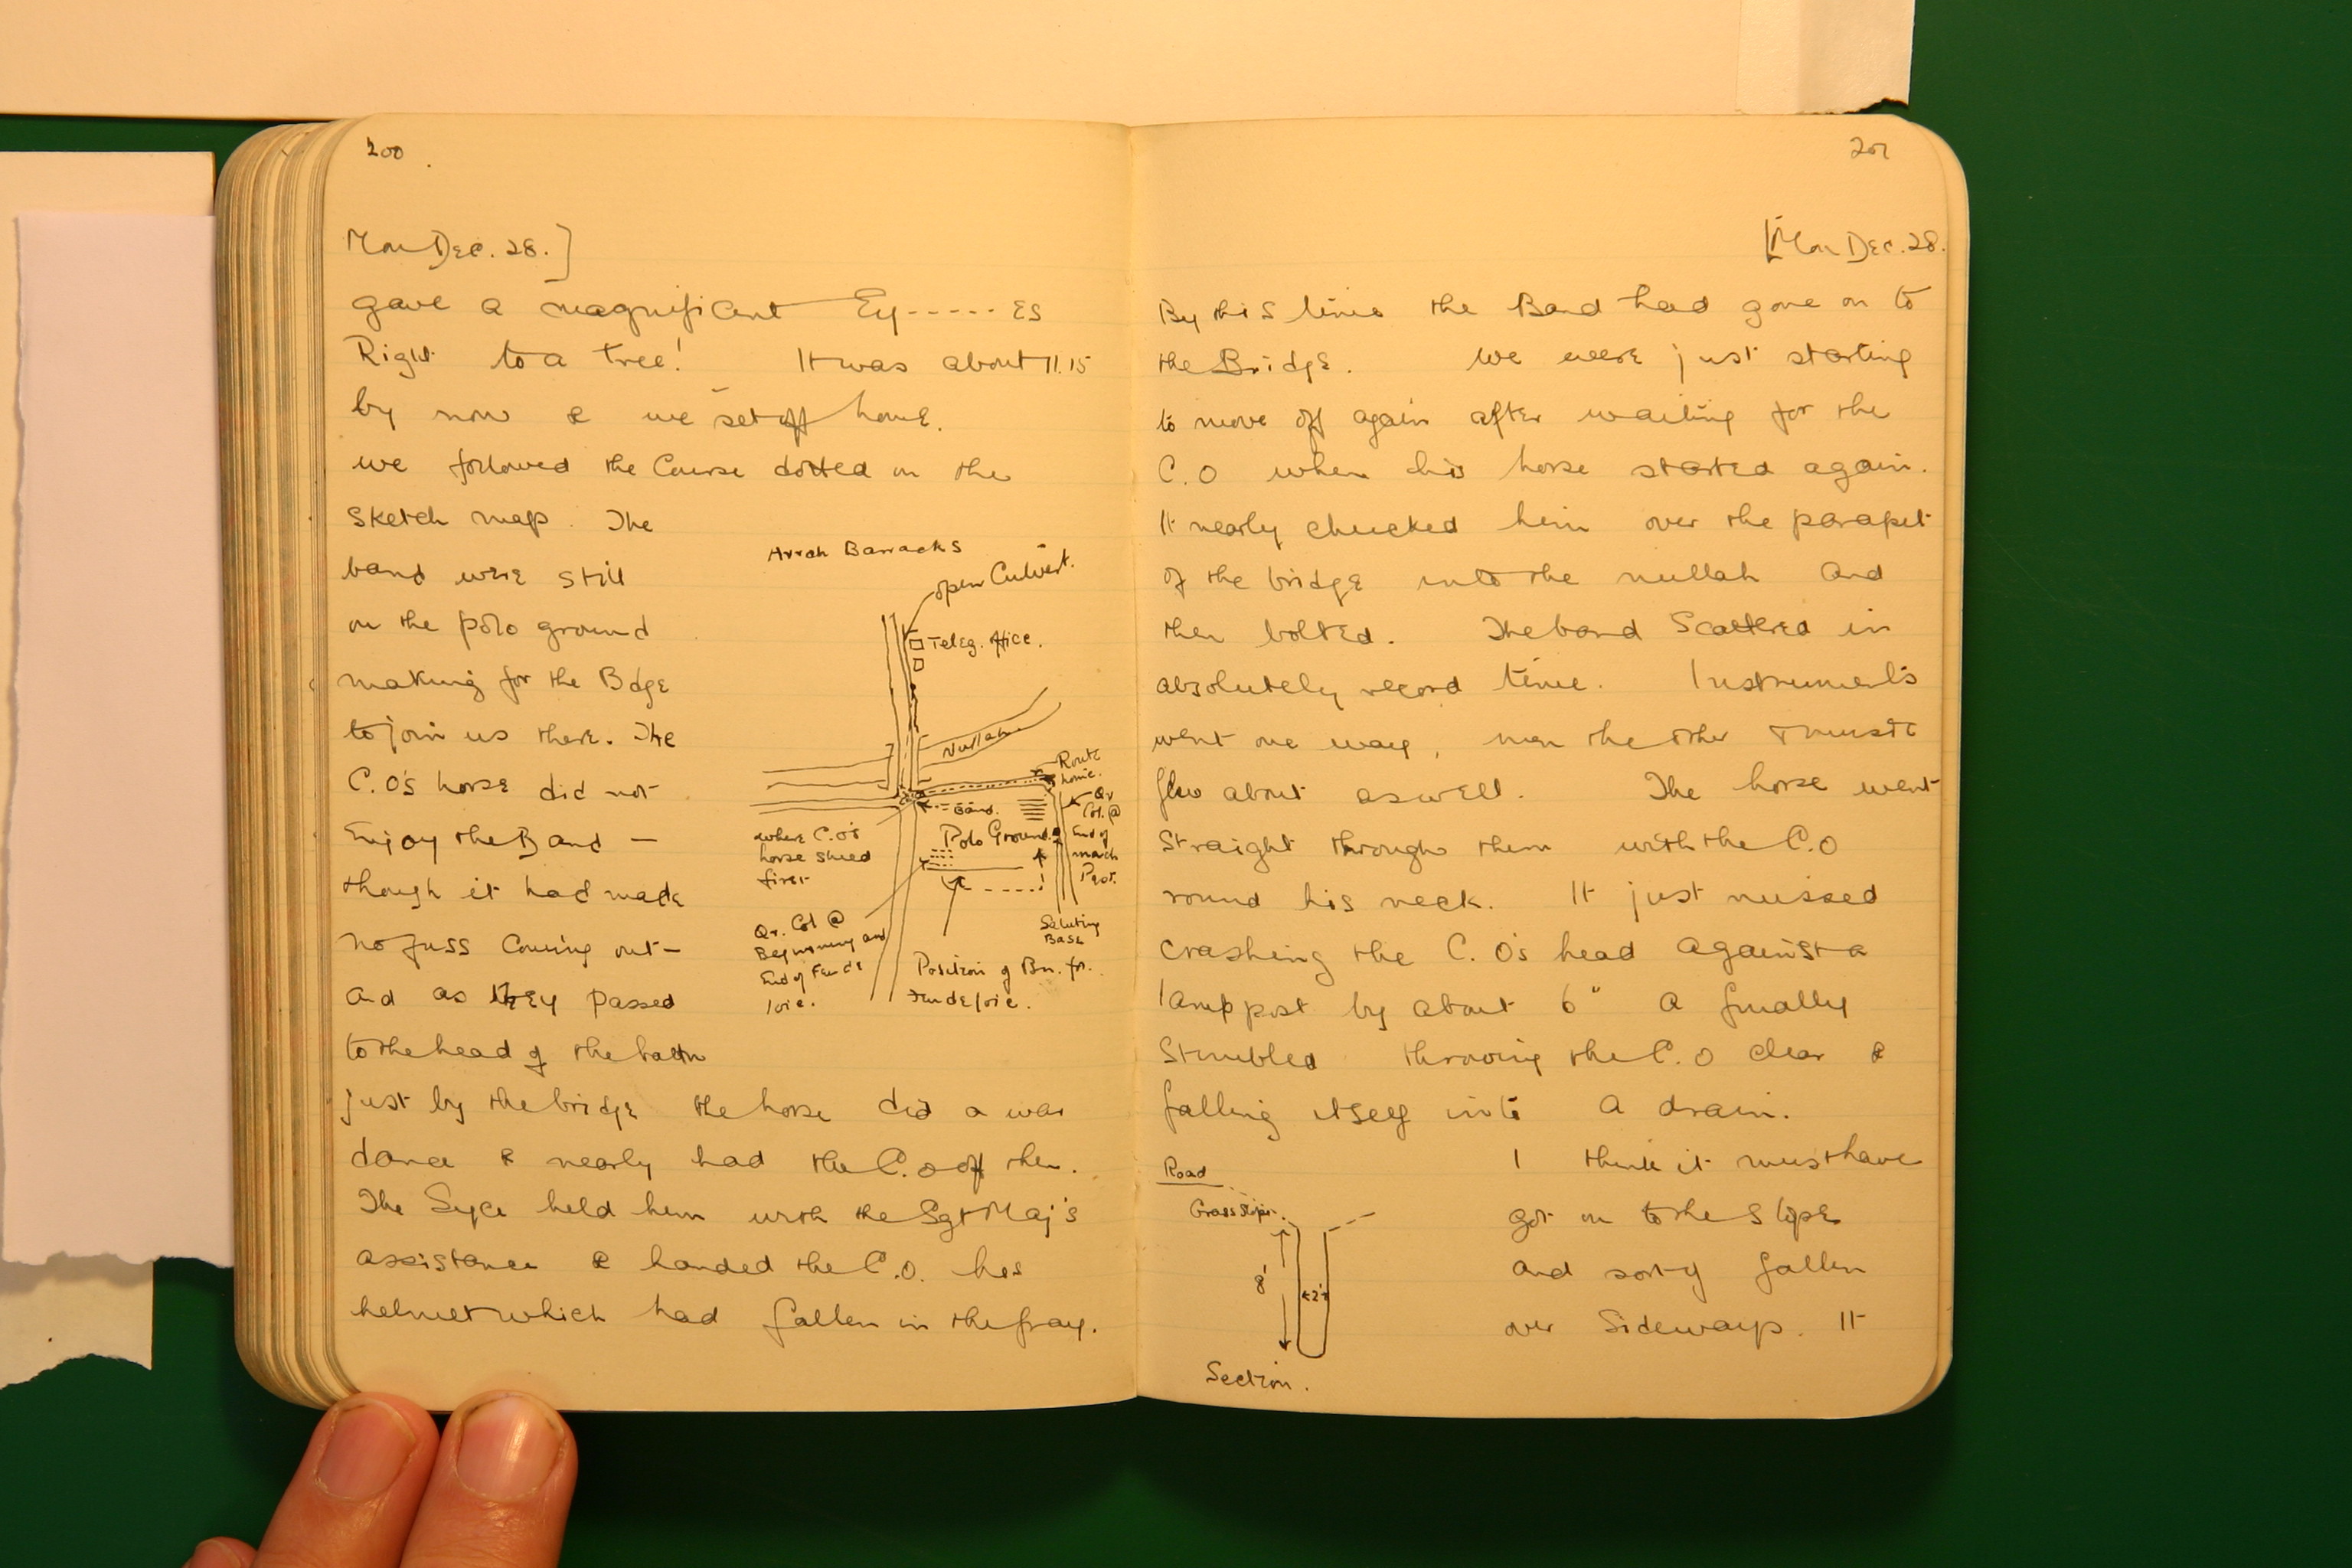 200
Mon Dec. 28.]
gave a magnificent Ey-----es
Right to a tree! It was about 11.15
by now & we set off home.
We followed the Course dotted on the
sketch map. The
band were still
on the polo ground
making for the Bdge
to join us there. The
C.O's horse did not
Enjoy the Band —
though it had made
no fuss coming out —
and as they passed
to the head of the battn
just by the bridge the horse did a war
dance & nearly had the C.O off then.
The Syce held him with the Sgt Maj's
assistance & handed the C.O. his
helmet which had fallen in the fray.
Arrah Barracks
open Culvert.
Teleg. Office.
Nullah
Route
home.
Band.
Qr
Col. @
End of
march
Past.
Polo Ground
where C.O's
horse shied
first
Saluting
Base
Qr. Col @
Beginning and
End of Feu de
Joie.
Position of Bn. for
Feu de Joie.
201
[Mon Dec. 28.
By this time the Band had gone on to
the Bridge. We were just starting
to move off again after waiting for the
C.O when his horse started again.
It nearly chucked him over the parapet
of the bridge into the nullah and
then bolted. The band Scattered in
absolutely record time. Instruments
went one way, men the other & music
flew about as well. The horse went
straight through them with the C.O
round his neck. It just missed
crashing the C.O's head against a
lamp post by about 6" & finally
stumbled throwing the C.O clear &
falling itself into a drain.
I think it must have
got on to the slope
and sort of fallen
over sideways. It
Road
Grass slope.
8'
2'
Section.